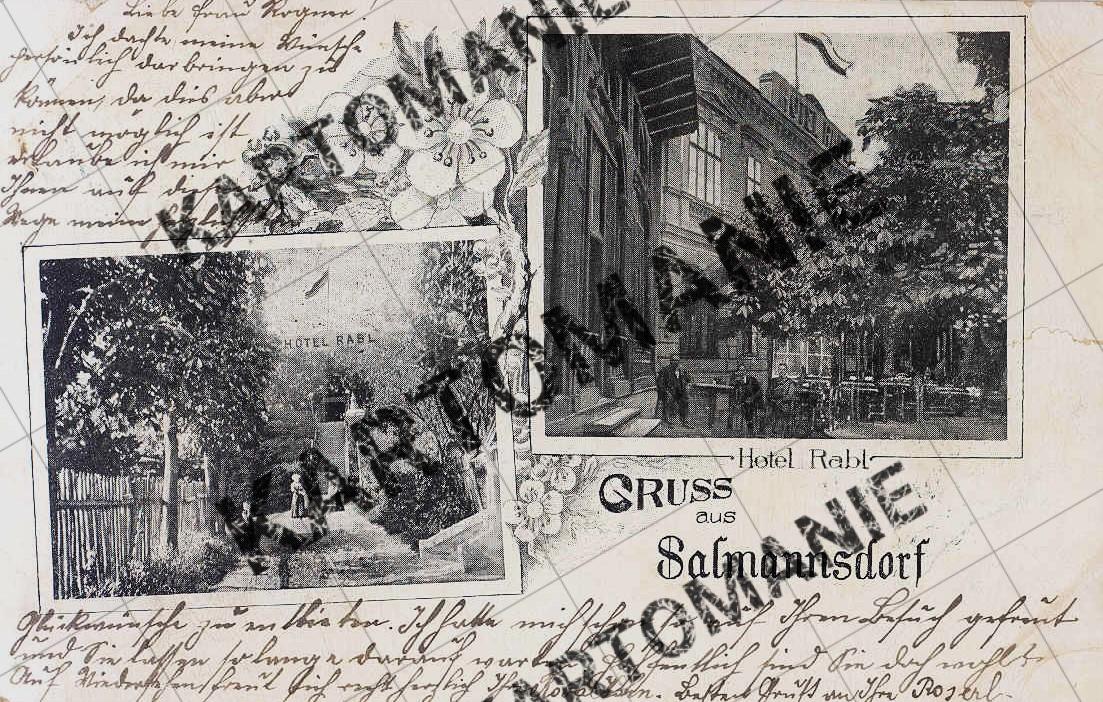 Liebe Frau Rogner!
Ich dachte meine Wünsche
persönlich darbringen zu
können, da dies aber
nicht möglich ist
erlaube ich mir
Ihnen auf diesem
Wege meine
HOTEL RABL
Hotel Rabl
GRUSS
aus
Salmannsdorf
Glückwünsche zu entbieten. Ich hatte mich schon so auf Ihren Besuch gefreut
und Sie lassen so lange darauf warten. Hoffentlich sind Sie doch wohl.
Auf Wiedersehen freut sich recht herzlich Ihre Besten Gruß an Ihre Roserl.
KARTOMANIE
KARTOMANIE
KARTOMANIE
KARTOMANIE